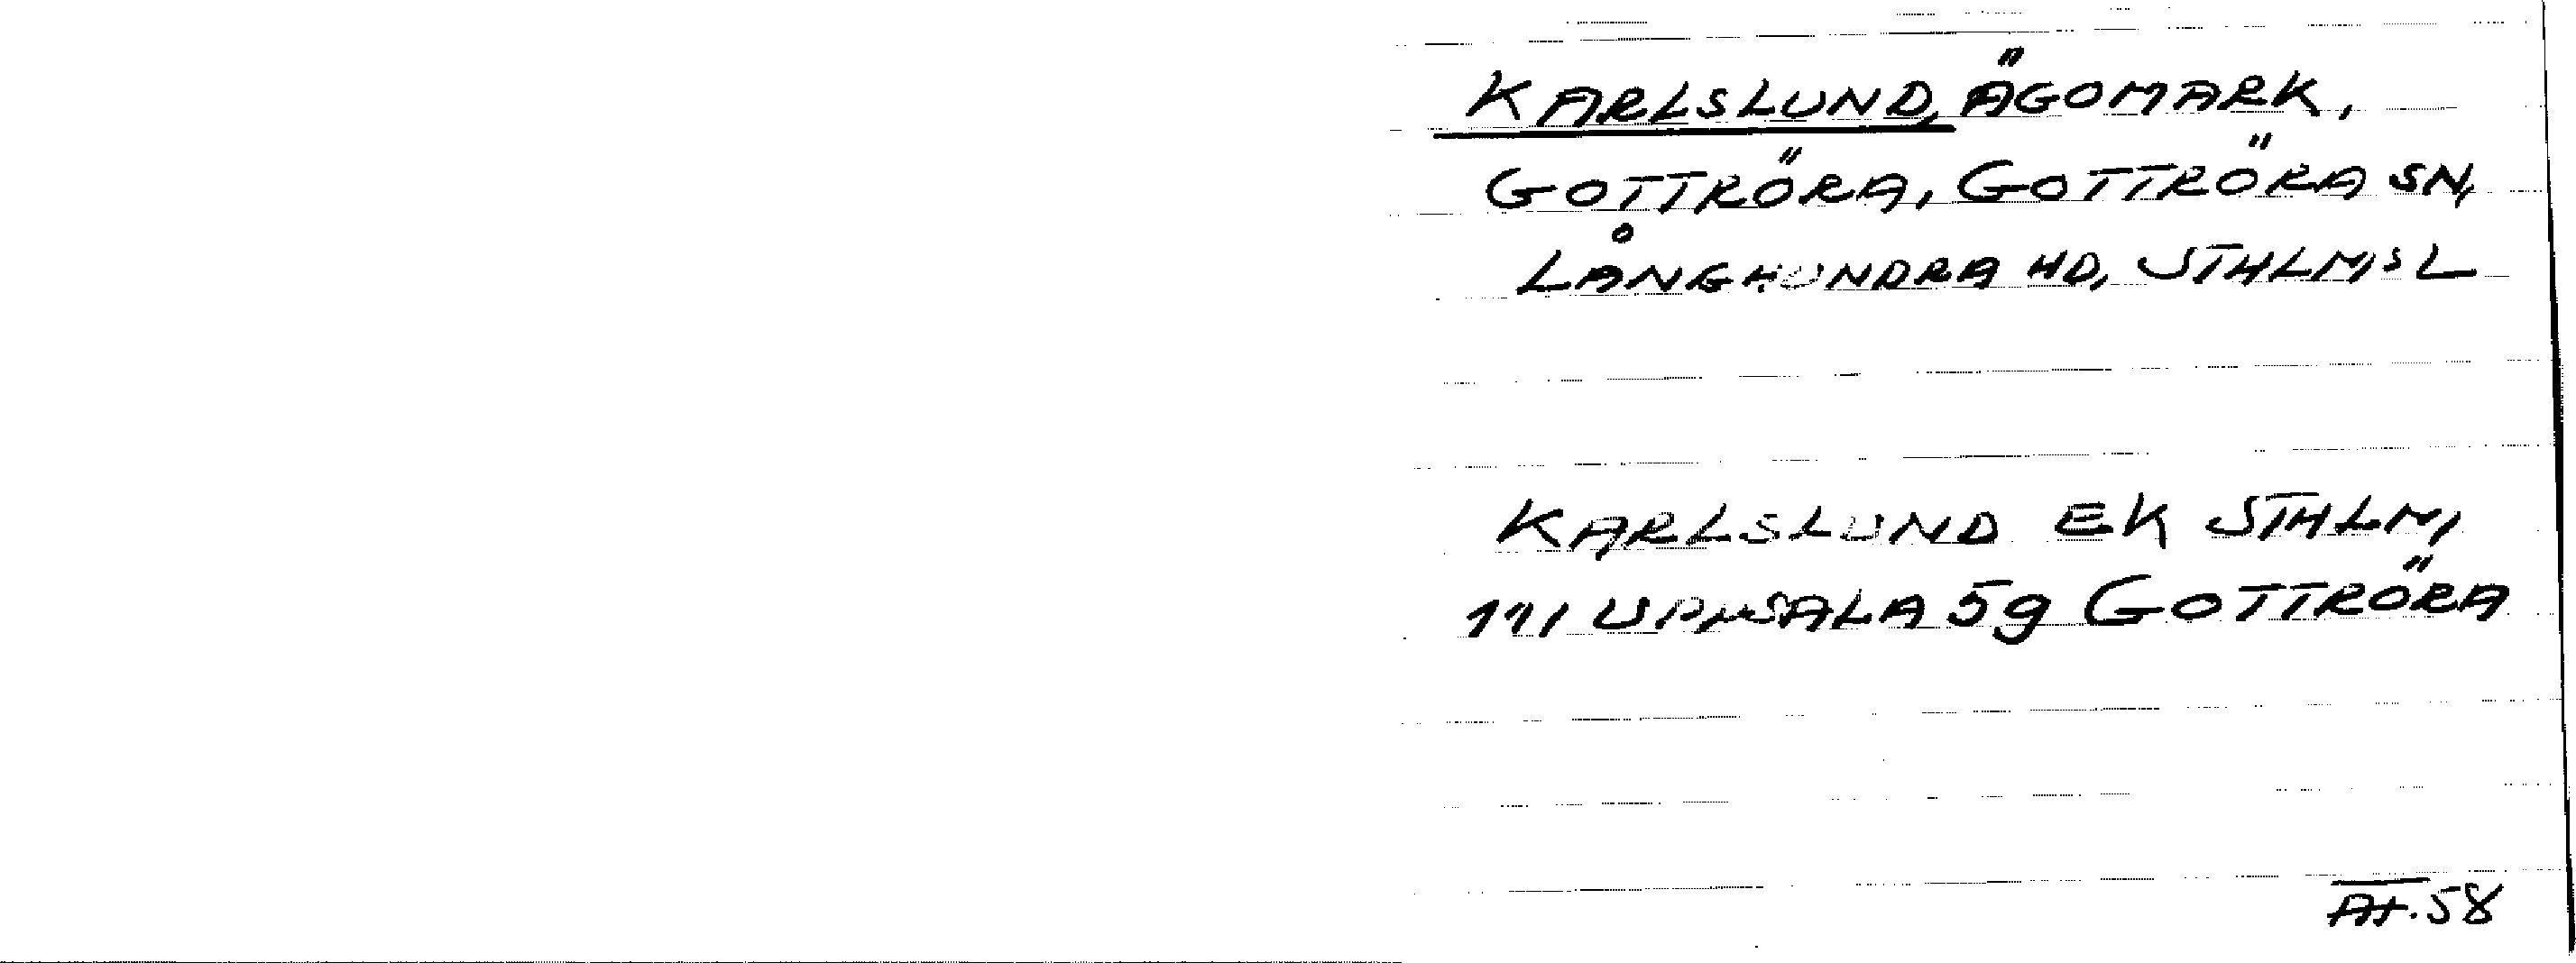 KARLSLUND, ÄGOMARK,
GOTTRÖRA, GOTTRÖRA SN,
LÅNGHUNDRA HD, STHLMS L
KARLSLUND EK STHLM,
111 UPPSALA 5g GOTTRÖRA
58